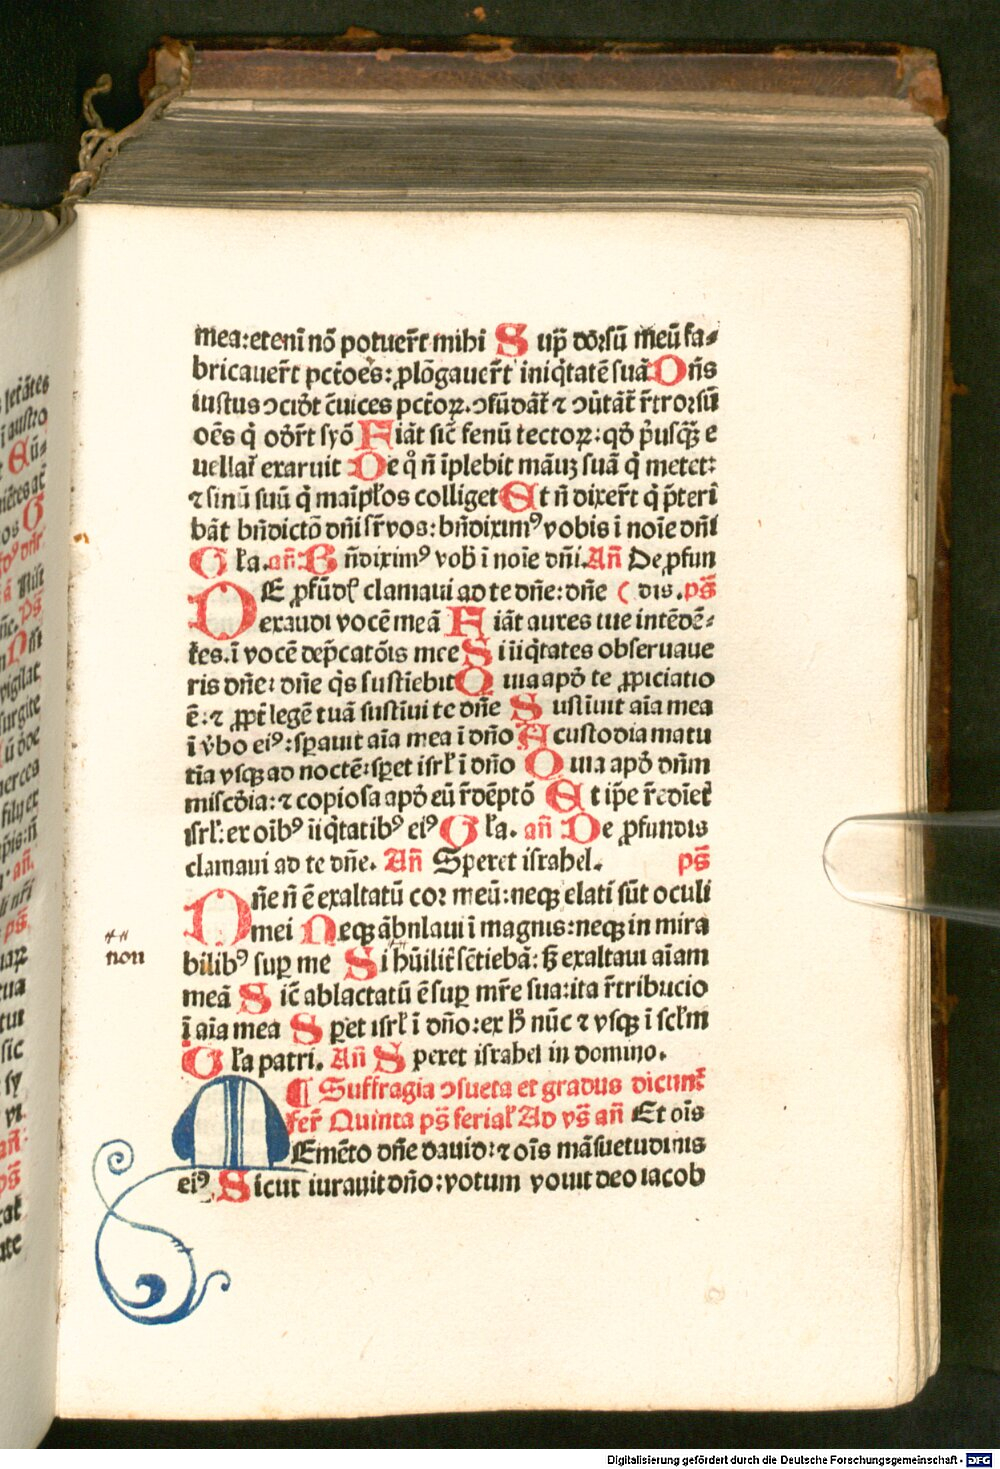 mea: eteni nō potuer̄t mihi Sup̄ dorsū meū fa-
bricauer̄t pct̄oēs: ꝓlōgauer̄t iniq̄tatē suā Dn̄s
iustus ↄcidt̄ c̄uices pct̄oꝝ. ↄfūdāt̄ ⁊ ↄūtāt̄ r̄trorsū
oēs q̇ odr̄t syō Fiāt sic̄ fenū tectoꝝ: qd̄ p̄usq̄ꝫ e
uellat̄ exaruit De qͦ n̄ īplebit māuꝫ suā q̇ metet:
⁊ sinū suū q̇ maīpłos colliget Et n̄ dixer̄t q̇ p̄teri
bāt bn̄dictō dn̄i sr̄ vos: bn̄diximꝰ vobis ī noīe dn̄i
Gła. an̄: Bn̄diximꝰ vob̄ ī noīe dn̄i. An̄ De ꝓfun
DE ꝓfūdꝭ clamaui ad te dn̄e: dn̄e ( dis. ps̄
exaudi vocē meā Fiāt aures tue intēdē-
tes. ī vocē dep̄catōis mee Si iiq̄tates obseruaue
ris dn̄e: dn̄e q̄s sustīebit Quia apd̄ te ꝓpiciatio
ē: ⁊ ꝓpt̄ legē tuā sustīui te dn̄e Sustīuit aīa mea
ī v̄bo eiꝰ: sꝑauit aīa mea ī dn̄o A custodia matu
tīa vsqꝫ ad noctē: sꝑet isrł ī dn̄o Quia apd̄ dn̄m
misc̄dia: ⁊ copiosa apd̄ eū r̄dēptō Et ip̄e r̄ediet̄
isrł: ex oībꝰ iiq̄tatibꝰ eiꝰ Gła. an̄ De ꝓfundis
clamaui ad te dn̄e. An̄ Speret israhel. ps̄
Dn̄e n̄ ē exaltatū cor meū: neqꝫ elati sūt oculi
mei Neqꝫ ābulaui ī magnis: neqꝫ in mira
non
bilibꝰ suꝑ me Si hūilit̄ sēt̄iebā: ꝫ exaltaui aīam
meā Sic̄ ablactatū ē suꝑ mr̄e sua: ita r̄tribucio
ī aīa mea Sꝑet isrł ī dn̄o: ex h̄ nūc ⁊ vsqꝫ ī sc̄łm
Gła patri. An̄ Speret israhel in domino.
¶ Suffragia ↄsueta et gradus dicunt̄
fer̄ Quinta ps̄ feriał Ad vs̄ an̄ Et oīs
MEmēto dn̄e dauid: ⁊ oīs māsuetudinis
eiꝰ Sicut iurauit dn̄o: votum vouit deo iacob
Digitalisierung gefördert durch die Deutsche Forschungsgemeinschaft - DFG